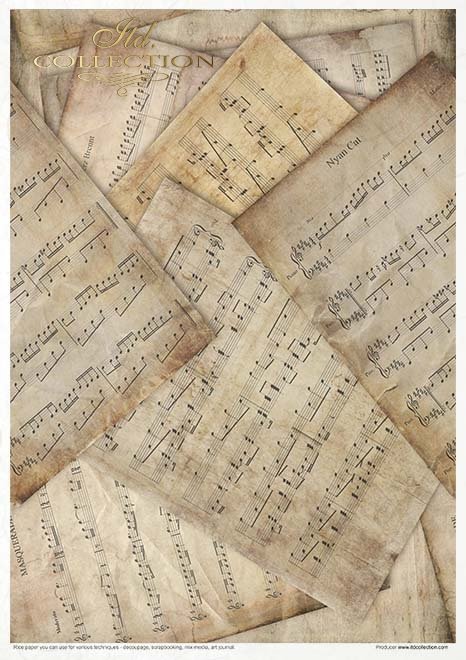 Itd.
COLLECTION
Nyan Cat
MASQUERADE
Rice paper you can use for various techniques - decoupage, scrapbooking, mix-media, art journal.
Producer www.itdcollection.com